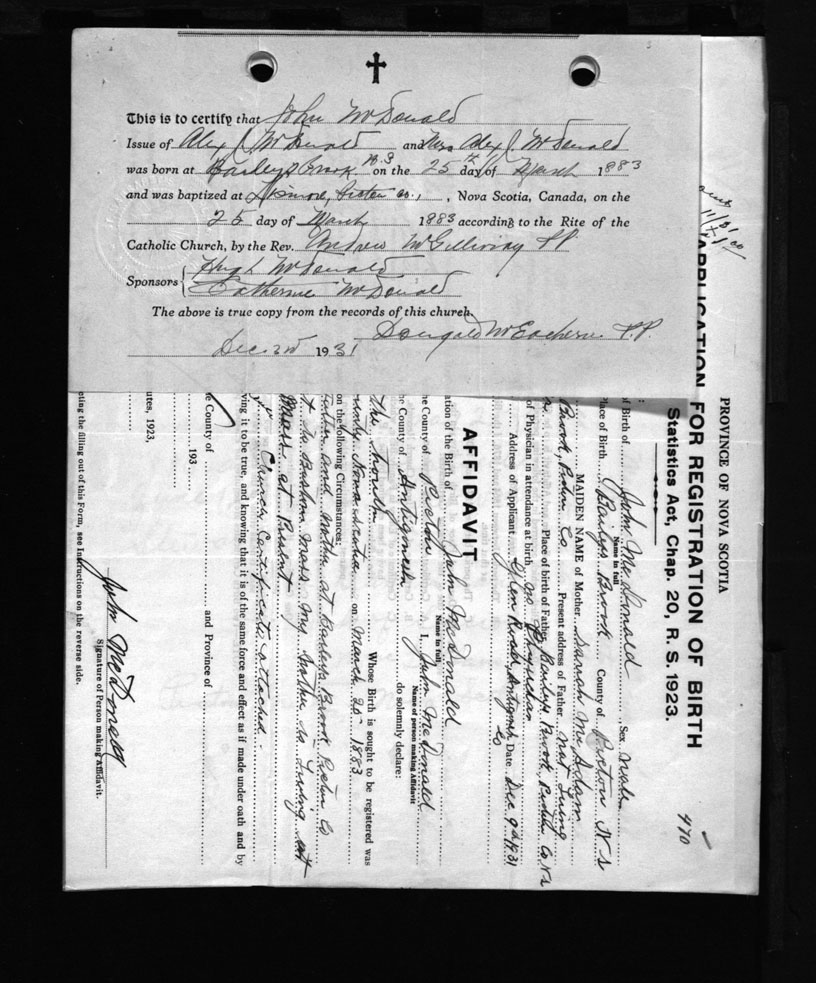 This is to certify that John McDonald
Issue of Alex J. McDonald and Mrs Alex J. McDonald
was born at Baileys Brook N.S on the 25th day of March 1883
and was baptized at Lismore, Pictou Co., Nova Scotia, Canada, on the
25 day of March 1883 according to the Rite of the
Catholic Church, by the Rev. Andrew McGillivray P.P.
Sponsors Hugh McDonald
Catherine McDonald
The above is true copy from the records of this church.
Dougald McEachern P.P.
Dec. 2nd 1931
PROVINCE OF NOVA SCOTIA
APPLICATION FOR REGISTRATION OF BIRTH
Statistics Act, Chap. 20, R. S. 1923.
470
of Birth of John McDonald Sex Male
Name in full
Place of Birth Baileys Brook County of Pictou N S
MAIDEN NAME of Mother Sarah McAdam
Brook, Pictou Co Present address of Father Not Living
Place of birth of Father Baileys Brook, Pictou Co N S
of Physician in attendance at birth no Physician
Address of Applicant Glen Road, Antigonish Co Date Dec 9th 1931
AFFIDAVIT
ation of the Birth of John McDonald
Name in full
he County of Pictou I, John McDonald
Name of person making Affidavit
he County of Antigonish do solemnly declare:
Whose Birth is sought to be registered was
unty Nova Scotia on March 25 1883
on the following Circumstances:
Father and Mother at Baileys Brook Pictou Co
Mass My Mother is Living at
Mass at Present
Church Certificate attached.
ving it to be true, and knowing that it is of the same force and effect as if made under oath and by
he County of and Province of
193
utes, 1923,
John McDonald
Signature of Person making Affidavit.
eting the filling out of this Form, see Instructions on the reverse side.